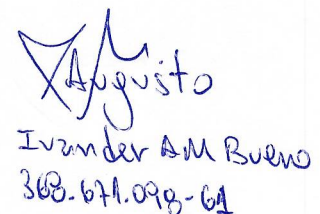 Augusto
Ivander AM Bueno
368.671.098-61